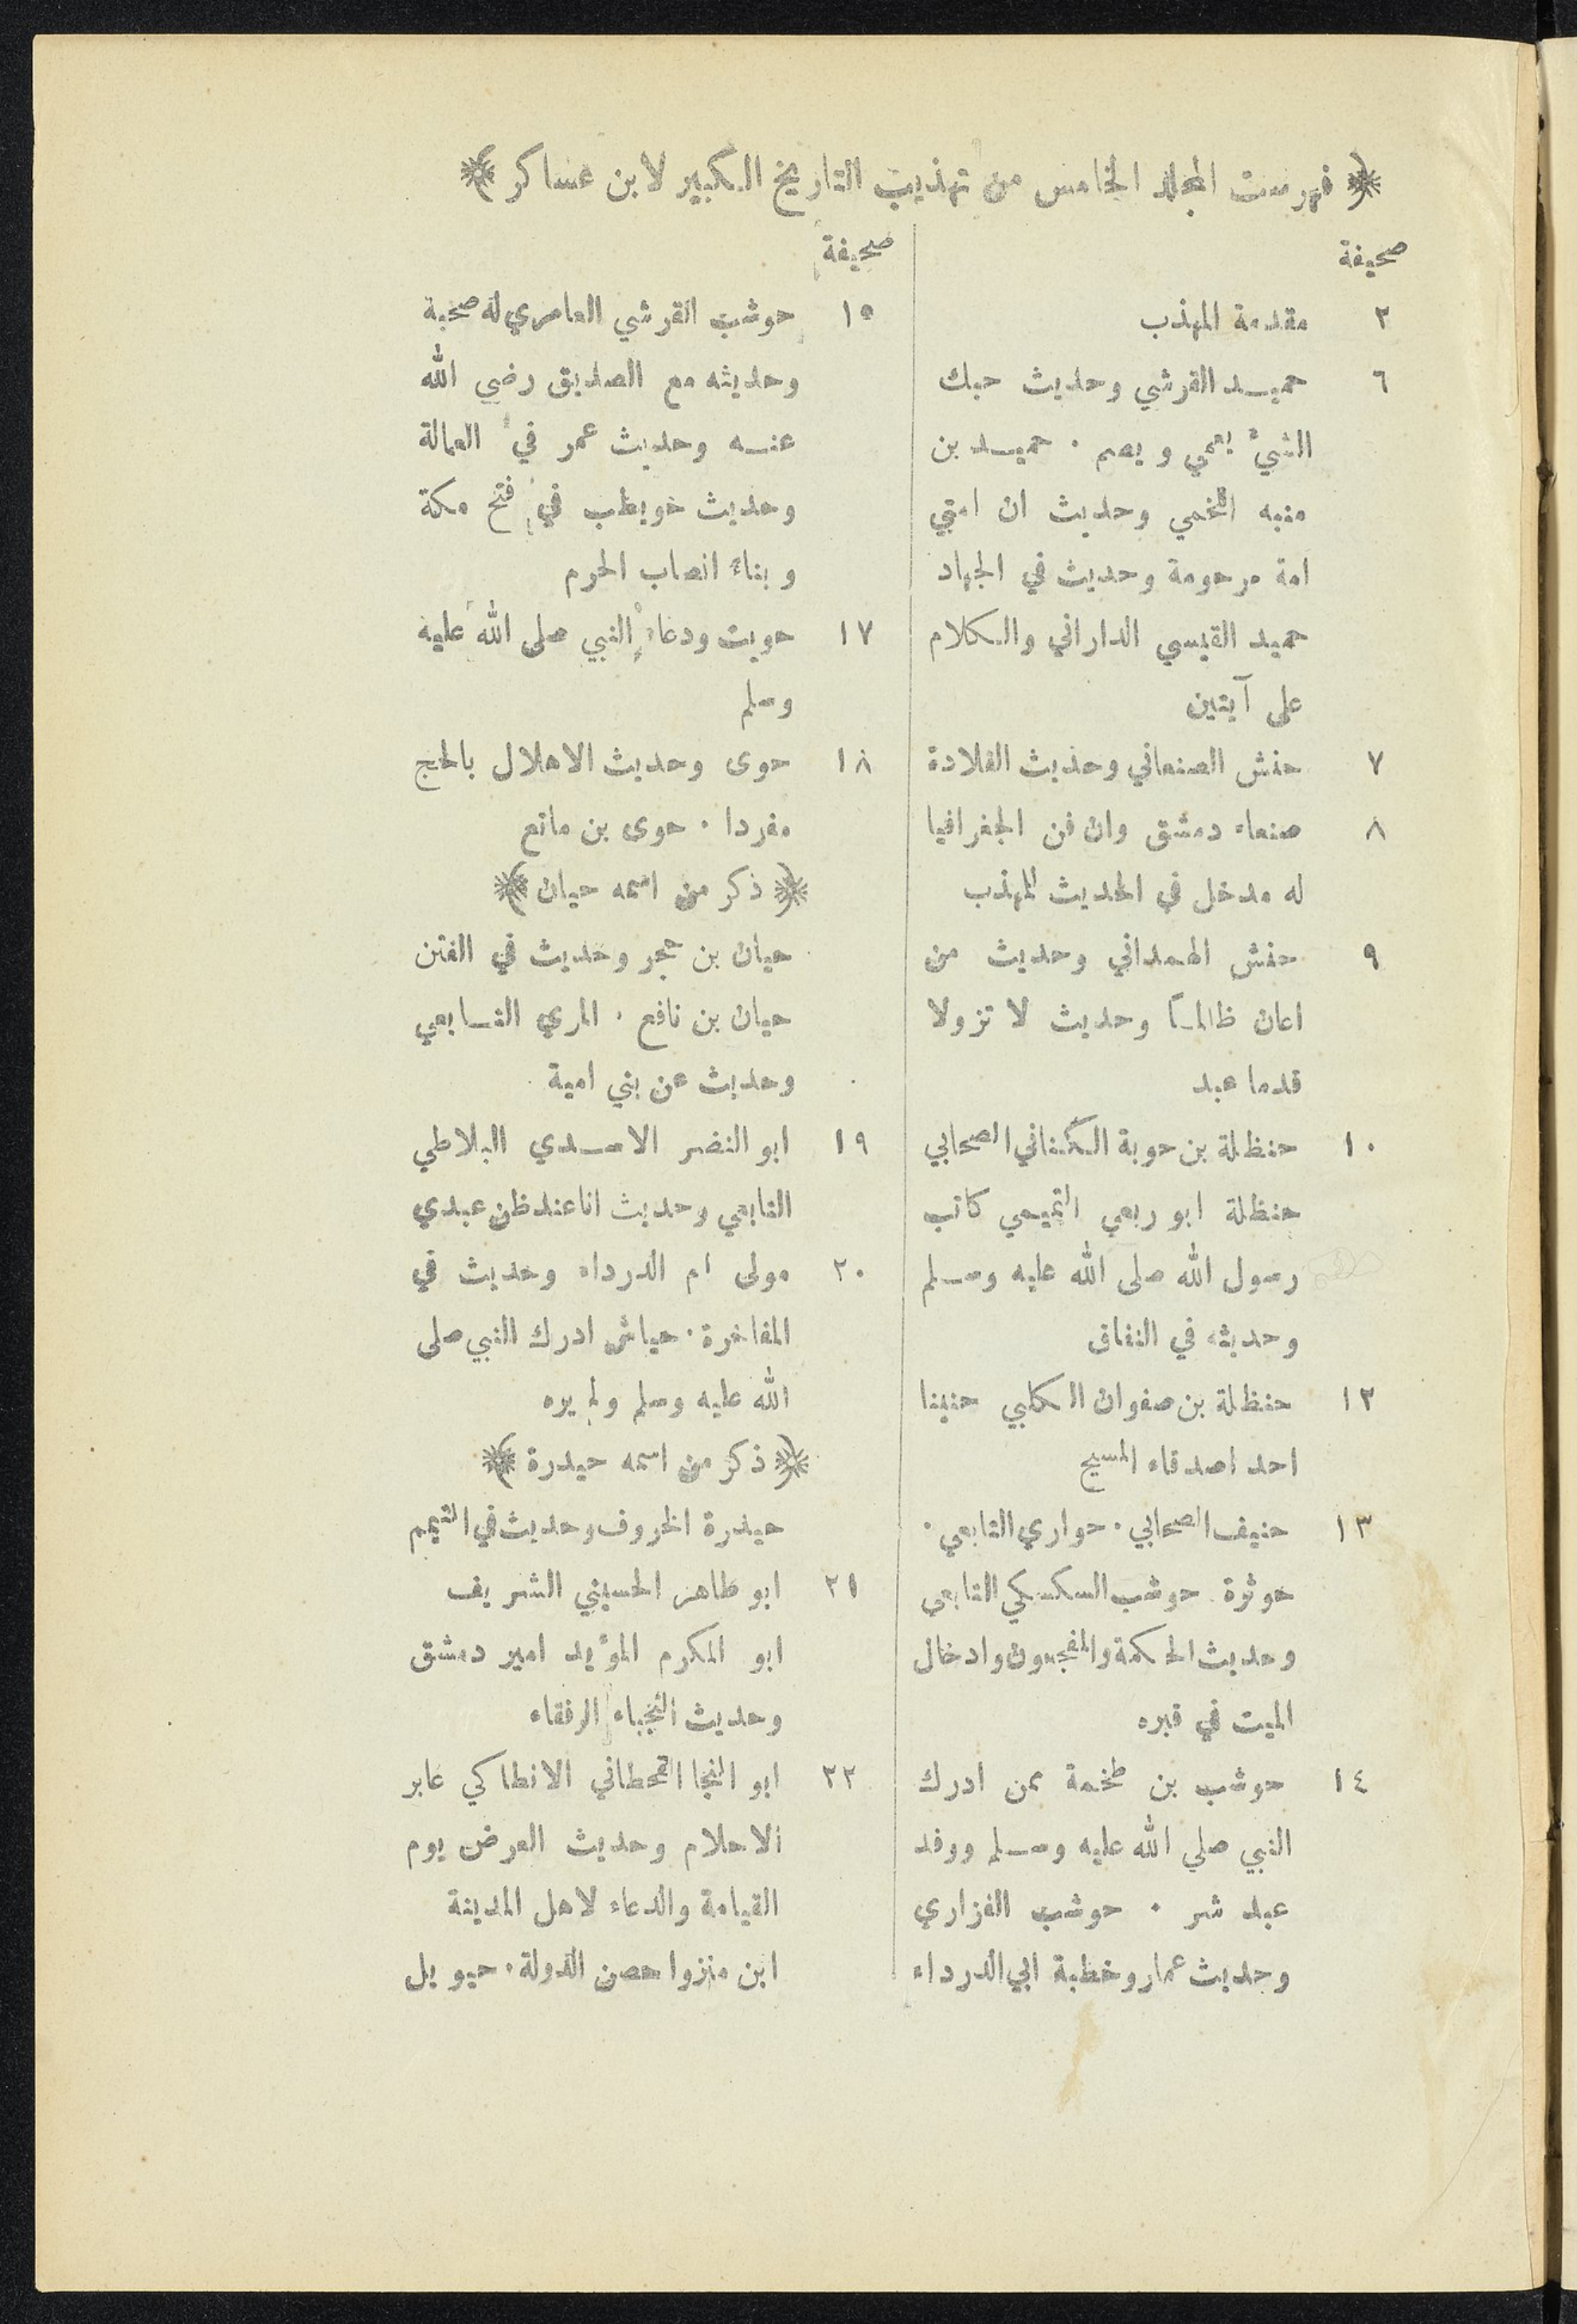 ﴿ فهرست المجلد الخامس من تهذيب التاريخ الكبير لابن عساكر ﴾
صحيفة
٢ مقدمة المهذب
٦ حميد القرشي وحديث حبك
الشيء يعمي ويصم . حميد بن
منبه اللخمي وحديث ان امتي
امة مرحومة وحديث في الجهاد
حميد القيسي الداراني والكلام
على آيتين
٧ حنش الصنعاني وحديث القلادة
٨ صنعاء دمشق وان فن الجغرافيا
له مدخل في الحديث للمهذب
٩ حنش الهمداني وحديث من
اعان ظالماً وحديث لا تزولا
قدما عبد
١٠ حنظلة بن حوية الكناني الصحابي
حنظلة ابو ربعي التميمي كاتب
رسول الله صلى الله عليه وسلم
وحديثه في النفاق
١٢ حنظلة بن صفوان الكلبي حنينا
احد اصدقاء المسيح
١٣ حنيف الصحابي . حواري التابعي .
حوثرة حوشب السكسكي التابعي
وحديث الحكمة والمفجعون وادخال
الميت في قبره
١٤ حوشب بن طخمة ممن ادرك
النبي صلي الله عليه وسلم ووفد
عبد شر . حوشب الفزاري
وحديث عمار وخطبة ابي الدرداء
صحيفة
١٥ حوشب القرشي العامري له صحبة
وحديثه مع الصديق رضي الله
عنه وحديث عمر في العمالة
وحديث حويطب في فتح مكة
وبناء انصاب الحرم
١٧ حويت ودعاء النبي صلى الله عليه
وسلم
١٨ حوى وحديث الاهلال بالحج
مفردا . حوى بن مانع
﴿ ذكر من اسمه حيان ﴾
حيان بن حجر وحديث في الفتن
حيان بن نافع . المري التابعي
وحديث عن بني امية
١٩ ابو النضر الاسدي البلاطي
التابعي وحديث انا عند ظن عبدي
٢٠ مولى ام الدرداء وحديث في
المفاخرة . حياش ادرك النبي صلى
الله عليه وسلم ولم يره
﴿ ذكر من اسمه حيدرة ﴾
حيدرة الخروف وحديث في التيمم
٢١ ابو طاهر الحسيني الشريف
ابو المكرم المؤيد امير دمشق
وحديث النجباء الرفقاء
٢٢ ابو النجا القحطاني الانطاكي عابر
الاحلام وحديث العرض يوم
القيامة والدعاء لاهل المدينة
ابن منزوا حصن الدولة . حيويل